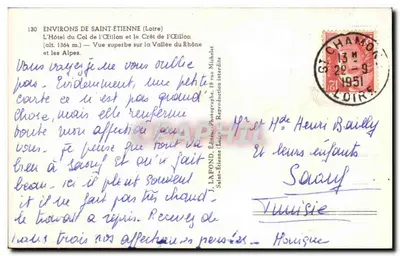 130 ENVIRONS DE SAINT-ETIENNE (Loire)
L'Hôtel du Col de l'Œillon et le Crêt de l'Œillon
(alt. 1364 m.) — Vue superbe sur la Vallée du Rhône
et les Alpes.
Vous voyez je ne vous oublie
pas. Evidemment, une petite
carte ce n'est pas grand
chose, mais elle renferme
toute mon affection pour
vous. Je pense que tout va
bien à Saouf et qu'il fait
beau. ici il pleut souvent
et il ne fait pas très chaud.
le travail a repris. Recevez de
nous trois nos affectueuses pensées. Monique
J. LAPOND, Editeur, Photographe, 19 rue Michelet
Saint-Etienne Reproduction interdite
ST CHAMOND
13 H
22-9
1951
LOIRE
Mr et Mde Henri Bailly
et leurs enfants
Saouf
Tunisie